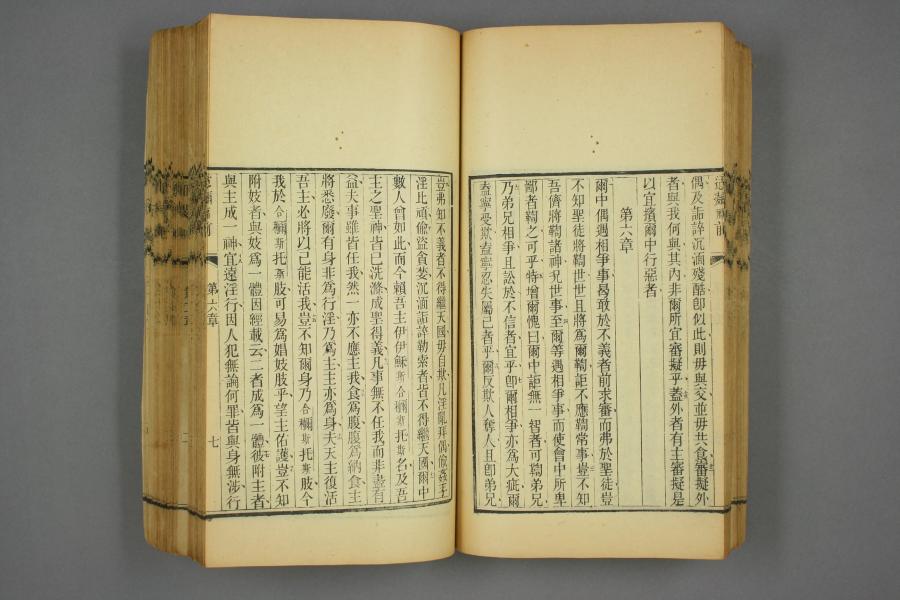 偶及詬誶沉湎殘酷卽似此則毋與交並毋共食審擬外
者與我何與其內非爾所宜審擬乎蓋外者有主審擬是
以宜擯爾中行惡者
第六章
爾中偶遇相爭事曷敢於不義者前求審而弗於聖徒豈
不知聖徒將鞫世世且將為爾鞫詎不應鞫常事豈不知
吾儕將鞫諸神况世事至爾等遇相爭事而使會中所卑
鄙者鞫之可乎特增爾愧曰爾中詎無一智者可鞫弟兄
乃弟兄相爭且訟於不信者宜乎卽爾相爭亦為大疵爾
盍寧受欺盍寧忍失屬己者乎爾反欺人奪人且卽弟兄
豈弗知不義者不得繼天國毋自欺凡淫亂拜偶偷姦
淫比頑偷盜貪婪沉湎詬誶勒索者皆不得繼天國爾中
數人曾如此而今賴吾主伊伊穌斯合爾斯托斯名及吾
主之聖神皆已洗滌成聖得義凡事無不任我而非盡有
益夫事雖皆任我然一亦不應主我食為腹腹為納食主
將悉廢爾有身非為行淫乃為主主亦為身夫天主復活
吾主必將以己能活我豈不知爾身乃合爾斯托斯肢今
我於合爾斯托斯肢可易為娼妓肢乎望主佑護豈不知
附妓者與妓為一體因經載云二者成為一體彼附主者
與主成一神宜遠淫行因人犯無論何罪皆與身無涉行
第六章
七